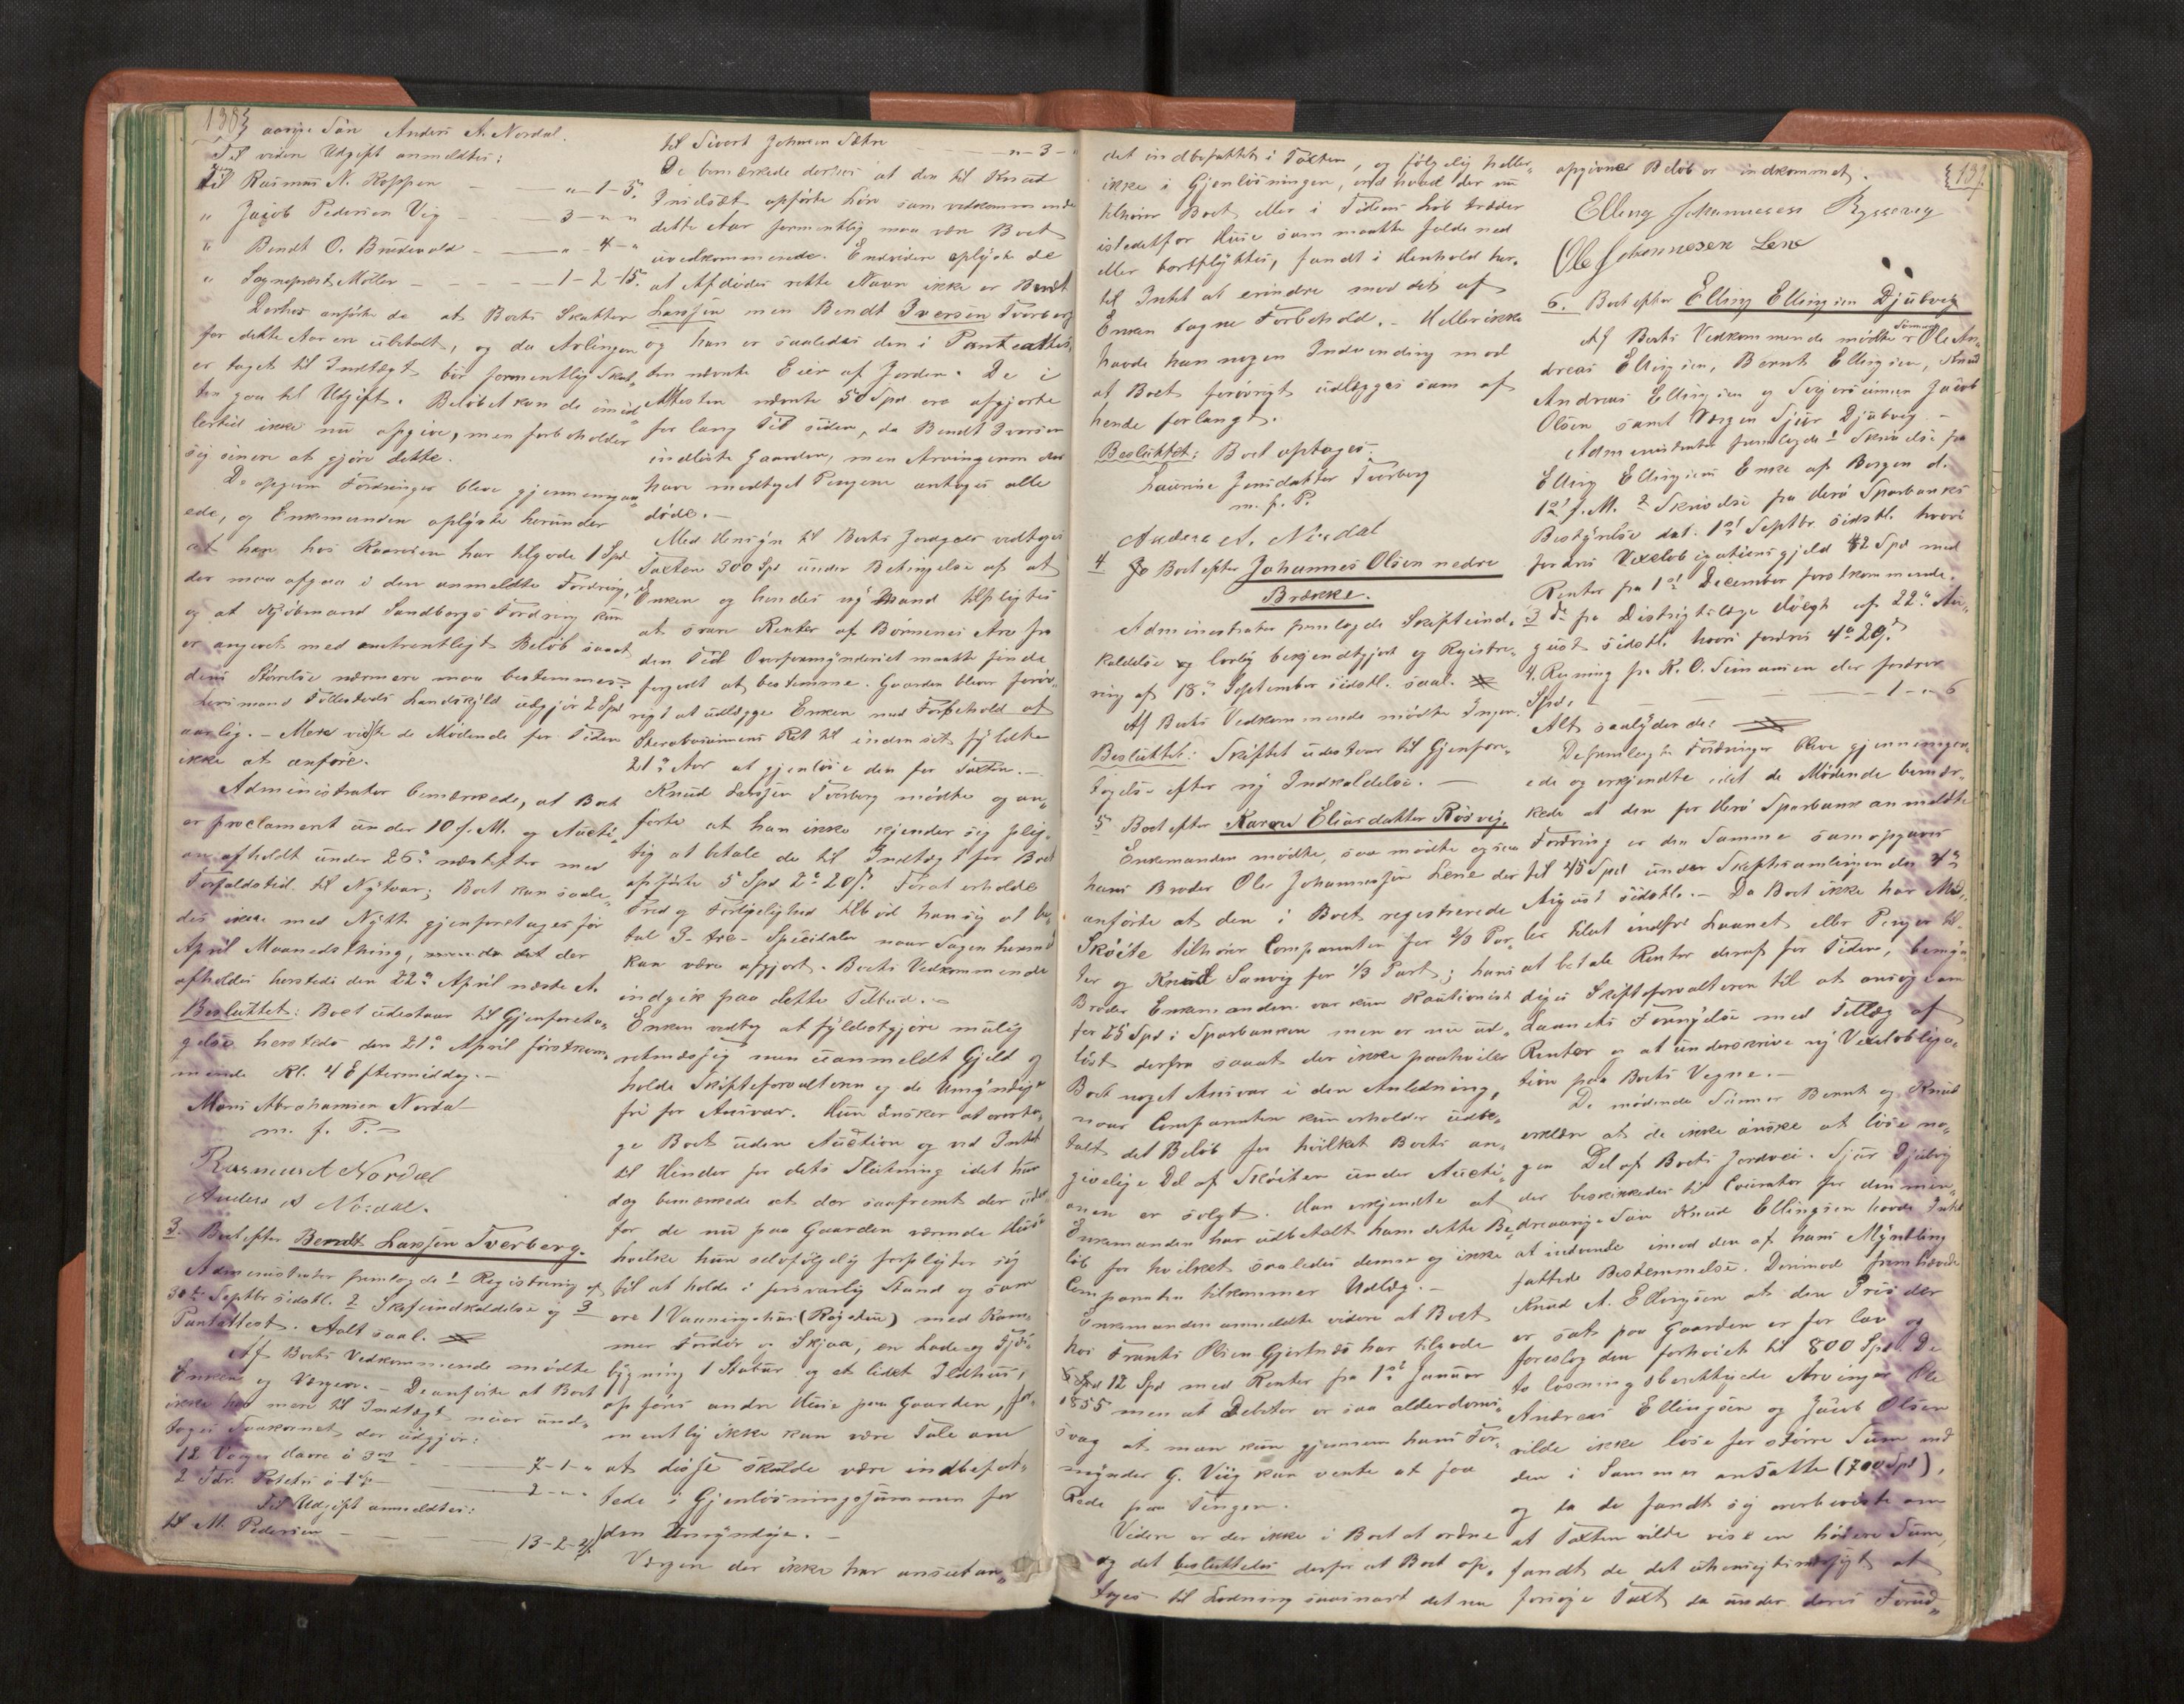 138
aarige Søn Anders A. Nordal.
Til videre Udgift anmeldtes:
Til Rasmus N. Koppen - - „ - 1 - 5.
„ Jacob Pedersen Vig - - 3 - „ „
„ Bendt O. Brudevold - - „ - 4 - „
„ Sognepræst Møller - - - 1 - 2 - 15.
Derhos anførte de at Boets Skatter
for dette Aar ere ubetalt, og da Avlingen
er taget til Indtægt bør formentlig Skat„
ten gaa til Udgift. Beløbet kan de imid„
lertid ikke nu opgive, men forbeholder
sig senere at gjøre dette.
De opgivne Fordringer bleve gjennemgaa„
ede, og Enkemanden oplyste herunder
at han hos Kaarsen har tilgode 1 Spd
der maa afgaa i den anmeldte Fordring,
og at Kjøbmand Sandborgs Fordring kun
er angivet med omtrentligt Beløb saaat
dens Størrelse nærmere maa bestemmes.
Lensmand Follestads Landskyld udgjør 2 Spd
aarlig. - Mere vidste de Mødende for Tiden
ikke at anføre.
Administrator bemærkede, at Boet
er proclameret under 10 f. M. og Aucti„
on afholdt under 26de næstefter med
Forfaldstid til Nytaar; Boet kan saale„
des ikke med Nytte gjenforetages før
April Maanedsthing, da det der
afholdes herstedes den 22de April næste A.
Besluttet: Boet udestaar til Gjenforeta„
gelse herstede den 21de April førstkom„
mende Kl. 4 Eftermiddag. -
Mons Abrahamsen Nordal
m. f. P. -
Rasmus A Nordal
Anders A Nordal.
3. Boet efter Bendt Larssen Tverberg.
Administrator fremlagde 1 Registrering af
30te Septbr sidstl. 2 Skifteindkaldelse og 3
Pantattest. Aalt saal.
Af Boets Vedkommende mødte
Enken og Værgen. - De anførte at Boet
ikke har mere til Indtægt naar und„
tages Saakornet der udgjør:
12 Voger Havre à 3 - - 7 - 1 - „
2 Tdr. Poteter à 1 - - 2 - „ -
Til Udgift anmeldtes:
til M. Pedersen - - - 13 - 2 - 21
til Sivert Johnsen Sætre - „ - 3 - „
De bemærkede derhos at den til Knud
Indsæt opførte Løn som vedkommende
dette Aar formentlig maa være Boet
uvedkommende. Endvidere oplyste de
at Afdødes rette Navn ikke er Bendt
Larssen men Bendt Iversen Tverberg
og han er saaledes den i Pantattes„
ten nævnte Eier af Jorden. De i
Attesten nævnte 50 Spd ere afgjorte
for lang Tid siden, da Bendt Iversen
indløste Gaarden, men Arvingerne der
have modtaget Pengene antages alle
døde. -
Med Hensyn til Boets Jordgods vedtoges
Taxten 300 Spd under Betingelse af at
Enken og hendes ny Mand tilpligtes
at svare Renter af Børnenes Arv fra
den Tid Overformynderiet maatte finde
forgodt at bestemme. Gaarden bliver forøv„
rigt at udlægge Enken med Forbehold af
Sterbosønnens Ret til inden sit fyldte
21de Aar at gjenløse den for Taxten. -
Knud Larssen Tverberg mødte og an„
førte at han ikke kjender sig plig„
tig at betale de til Indtægt for Boet
opførte 5 Spd 2 20 s. For at erholde
Fred og Forligelighed tilbød han sig at be„
tale 3 - tre - Speciedaler naar Sagen hermed
kan være afgjort. Boets Vedkommende
indgik paa dette Tilbud. -
Enken vedtog at fyldestgjøre mulig
retmæssig men uanmeldt Gjeld og
holde Skifteforvalteren og de Umyndige
fri for Ansvar. Hun ønsker at overta„
ge Boet uden Auction og ved Intet
til Hinder for dets Slutning idet hun
dog bemærkede at der saafremt der
for de nu paa Gaarden værende Huse
hvilke hun selvfølgelig forpligter sig
til at holde i forsvarlig Stand og som
ere 1 Vaaningshus (Røgstue) med Kam„
mer Fordør og Skjaa, en Lade og Fjøs„
bygning 1 Stabur og et lidet Ildhus,
opføres andre Huse paa Gaarden, for„
mentlig ikke kan være Tale om
at disse skulde være indbefat„
tede i Gjenløsningssummen for
den Umyndige. -
Værgen der ikke har anseet an„
139.
det indbefattet i Taxten, og følgelig heller
ikke i Gjenløsningen, end hvad der nu
tilhører Boet eller i Tidens Løb træder
istedetfor Huse som maatte falde ned
eller bortflyttes, fandt i Henhold her„
til Intet at erindre mod det af
Enken tagne Forbehold. - Heller ikke
havde han nogen Indvending mod
at Boet forøvrigt udlægges som af
hende forlangt.
Besluttet: Boet optages.
Laurine Jensdatter Tverberg
m. f. P.
Anders A. Nordal
4 Boet efter Johannes Olsen nedre
Brække.
Administrator fremlagde Skifteind„
kaldelse og lovlig bekjendtgjort og Registre„
ring af 18de September sidstl. saal.
Af Boets Vedkommende mødte Ingen.
Besluttet: Skiftet udestaar til Gjenfore„
tagelse efter ny Indkaldelse. -
5 Boet efter Karen Eliasdatter Røsvig.
Enkemanden mødte, saa mødte ogsaa
hans Broder Ole Johannesen Lene der
anførte at den i Boet registrerede
Skøite tilhører Comparenten for 2/3 Par„
ter og Knud Sanvig for 1/3 Part; hans
Broder Enkemanden var kun Kautionist
for 25 Spd i Sparbanken men er nu ud„
løst derfra saaat der ikke paahviler
Boet noget Ansvar i den Anledning,
naar Comparenten kun erholder udbe„
talt det Beløb for hvilket Boets an„
givelige Del af Skøiten under Aucti„
onen er solgt. Han erkjendte at
Enkemanden har udbetalt ham dette Be„
løb for hvilket saaledes denne og ikke
Comparenten tilkommer Udlæg. -
Enkemanden anmeldte videre at Boet
hos Frants Olsen Gjertnæs har tilgode
12 Spd med Renter fra 1ste Januar
1855 men at Debitor er saa alderdoms„
svag at man kun gjennem hans For„
mynder G. Viig kan vente at faa
Rede paa Tingen.
Videre er der ikke i Boet at ordne
og det besluttedes derfor at Boet op„
tages til Slutning saasnart det nu
opgivne Beløb er indkommet.
Elling Johannesen Ryssevig
Ole Johannesen Lene
6. Boet efter Elling Ellingsen Djubvig
Af Boets Vedkommende mødte Sønnerne Ole An„
dreas Ellingsen, Bernt Ellingsen, Knud
Andreas Ellingsen og Svigersønnen Jacob
Olsen samt Værgen Sjur Djubvig. -
Administrator fremlagde 1 Skrivelse fra
Elling Ellingsens Enke af Bergen d.
12 f. M. 2 Skrivelse fra Herø Sparbanks
Bestyrelse dat. 1ste Septbr. sidstl. hvori
fordres Vexelobligationsgjeld 42 Spd med
Renter fra 1ste December førstkommende.
3 do fra Distriktslæge Høegh af 22de Au„
gust sidstl. hvori fordres 4 20 s.
4. Regning fra K. O. Simonsen der fordrer
Spd. - - - - 1 - „ 6
Alt saalydende:
De fremlagte Fordringer bleve gjennemgaa„
ede og erkjendte idet de Mødende bemær„
kede at den for Herø Sparbank anmeldte
Fordring er den Samme som opgaves
til 45 Spd under Skiftesamlingen den 4de
August sidstl. - Da Boet ikke har Mid„
ler til at indfri Laanet eller Penge til
at betale Renter deraf for Tiden, bemyn„
diges Skifteforvalteren til at ansøge om
Laanets Fornyelse med Tillæg af
Renter og at underskrive ny Vexelobliga„
tion paa Boets Vegne. -
De mødende Sønner Bernt og Knud
erklærede at de ikke ønske at løse no„
gen Del af Boets Jordvei. Sjur Djubvig
der beskikkedes til Courator for den min„
dreaarige Søn Knud Ellingsen havde Intet
at indvende imod den af hans Myndling
fattede Bestemmelse. Derimod fremhævede
Knud A. Ellingsen at den Pris der
er sat paa Gaarden er for lav og
foreslog den forhøiet til 800 Spd. De
to løsningsberettigede Arvinger Ole
Andreas Ellingsen og Jacob Olsen
vilde ikke løse for større Sum end
den i Summen ansatte (700 Spd),
og da de fandt sig overbeviste om
at Taxten vilde vise en høiere Sum,
fandt de det uhensigtsmæssigt at
forsøge Taxt da under deres Forud„